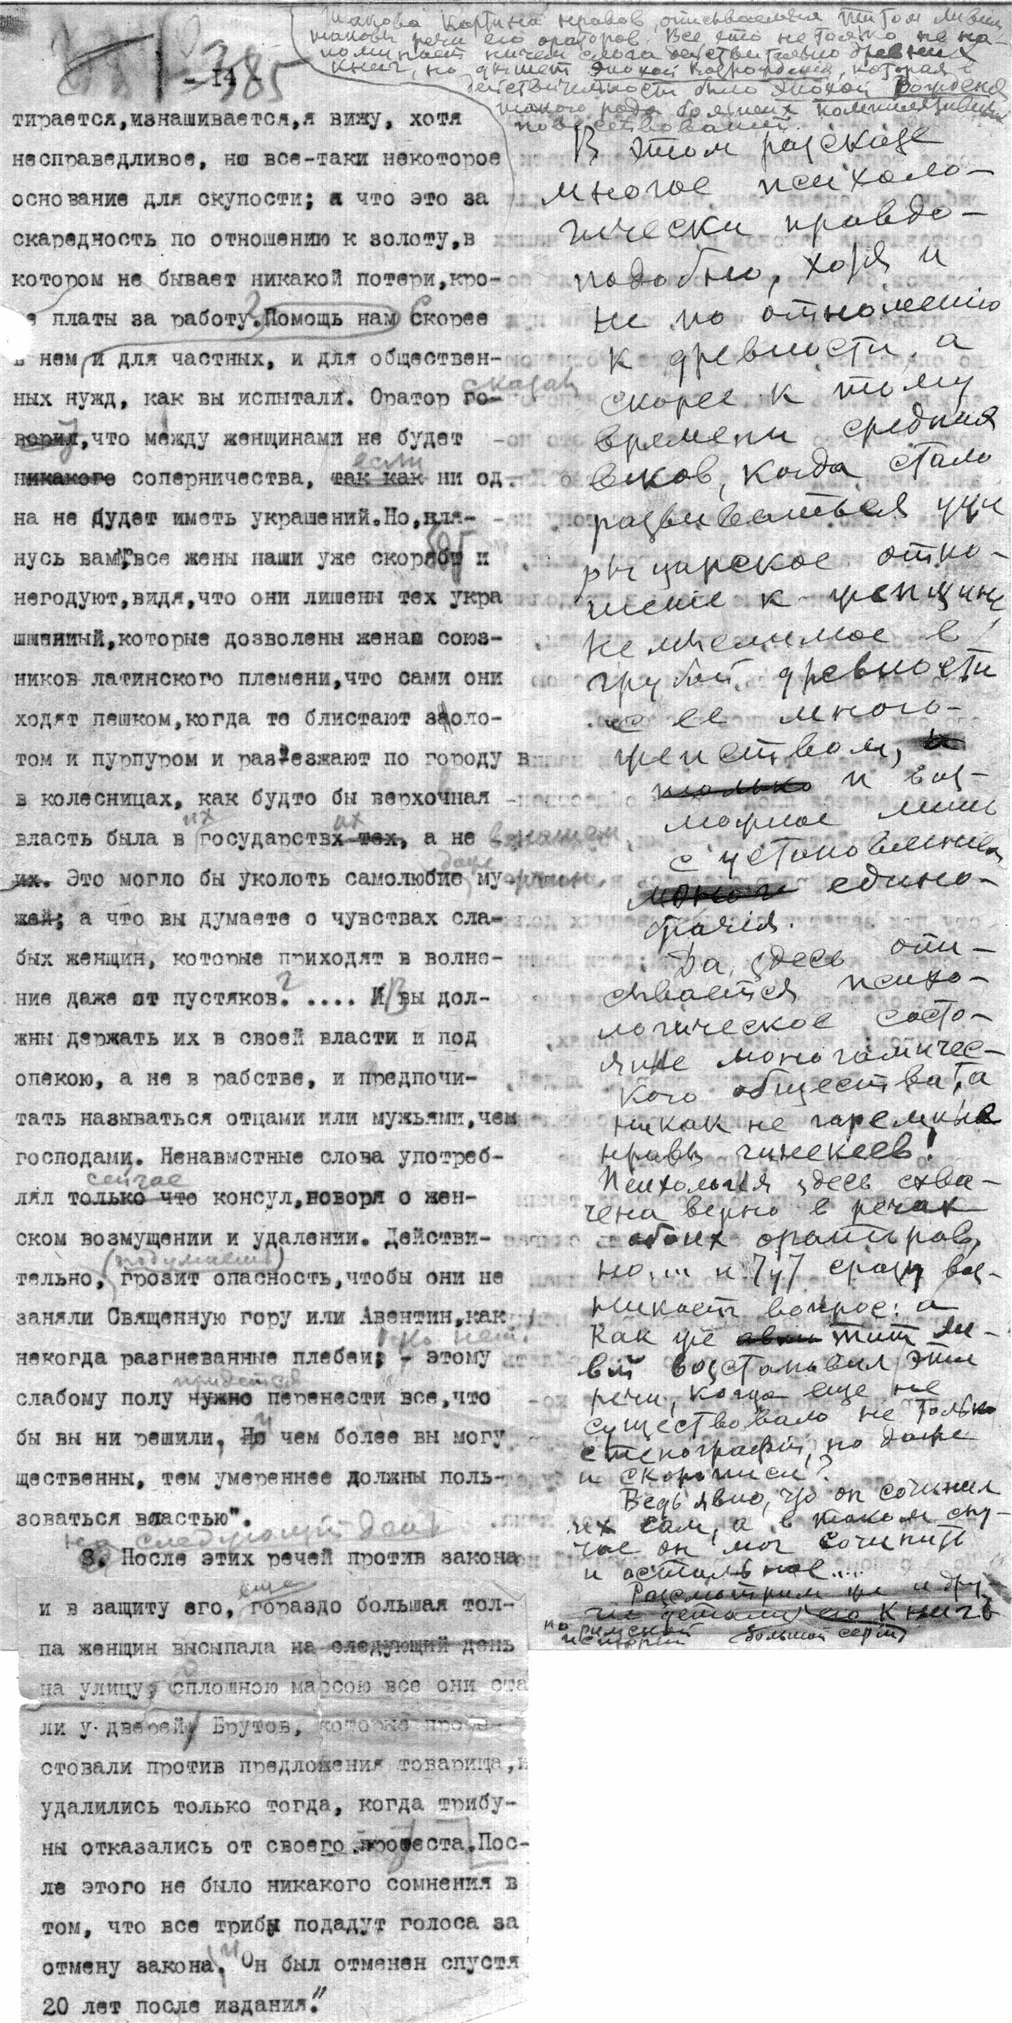 Такова картина нравов, описываемая Титом Ливием,
таковы речи его ораторов. Все это не только не на-
поминает ничем слога действительно древних
книг, но дышет эпохой Возрождения, которая
действительности была эпохой Рождения
такого рода больших
повествований.
385
- 14 -
тирается,изнашивается,я вижу, хотя
несправедливое, но все-таки некоторое
основание для скупости; а что это за
скаредность по отношению к золоту,в
котором не бывает никакой потери,кро-
е платы за работу? Помощь нам Скорее
в нем и для частных, и для обществен-
ных нужд, как вы испытали. Оратор го-
сказал
ворил,что между женщинами не будет
никакого соперничества, так как ни од-
если
на не будет иметь украшений.Но,кля-
нусь вам,все жены наши уже скорбят и
негодуют,видя,что они лишены тех укра
шений,которые дозволены женам союз-
ников латинского племени,что сами они
ходят пешком,когда те блистают золо-
том и пурпуром и раз'езжают по городу в
в колесницах, как будто бы верхочная
власть была в их государствах тех, а не в нашем
их. Это могло бы уколоть самолюбие даже мужчин
жей; а что вы думаете о чувствах сла-
бых женщин, которые приходят в волне-
ние даже от пустяков? .... И вы дол-
жны держать их в своей власти и под
опекою, а не в рабстве, и предпочи-
тать называться отцами или мужьями,чем
господами. Ненавмстные слова употреб-
лял только что консул,новоря о жен-
сейчас
ском возмущении и удалении. Действи-
тельно, (подумаешь) грозит опасность,чтобы они не
заняли Священную гору или Авентин,как
некогда разгневанные плебеи! Но нет! - этому
слабому полу нужно перенести все,что
придется
бы вы ни решили, Но чем более вы могу
щественны, тем умереннее должны поль-
зоваться властью".
на следующий день
8. После этих речей против закона
и в защиту его, еще гораздо большая тол-
па женщин высыпала на следующий день
на улицу, сплошною массою все они ста
ли у дверей Брутов, которые проте-
стовали против предложения товарища,и
удалились только тогда, когда трибу-
ны отказались от своего протеста.Пос-
ле этого не было никакого сомнения в
том, что все трибы подадут голоса за
отмену закона, и Он был отменен спустя
20 лет после издания."
В этом рассказе
многое психоло-
гически правдо-
подобно, хотя и
не по отношению
к древности, а
скорее к тому
времени средних
веков, когда стало
развиваться уже
рыцарское отно-
шение к женщине
немыслимое в
грубой древности
с ее много-
женством, и
только и воз-
можное лишь
с установлением
моног едино-
брачия.
Да, здесь опи-
сывается психо-
логическое состо-
яние моногамичес-
кого общества, а
никак не гаремные
нравы гинекеев!
Психология здесь схва-
чена верно в речах
обоих ораторов,
но ... и тут сразу воз-
никает вопрос: а
как же Тит Ли-
вий восстановил эти
речи, когда еще не
существовало не только
стенографии, но даже
и скорописи?
Ведь явно, что он сочинил
их сам, а в таком слу-
чае он мог сочинить
и остальное....
Рассмотрим же и дру-
гие детали его книг
по римской истории (большой серии)